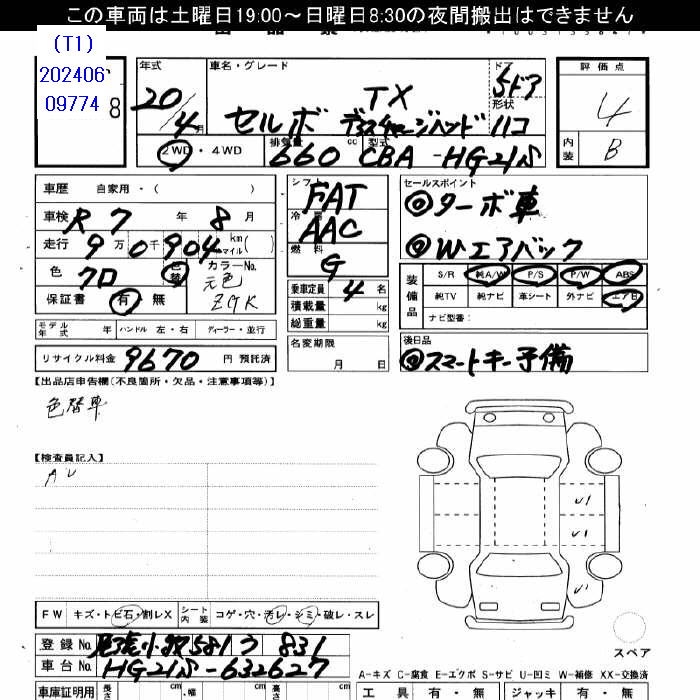 この車両は土曜日19:00～日曜日8:30の夜間搬出はできません
(T1)
202406
09774
8
年式
20
4月
車名・グレード
TX
セルボ
ドア
5ドア
形状
ハコ
評価点
4
内装
B
2WD・4WD
排気量
660 cc
型式
CBA-HG21S
車歴 自家用・( )
車検 R7年8月
走行 9万0千904 km マイル( )
色 クロ
色替
カラーNo.
元色
ZGK
保証書 有・無
モデル年式 年 ハンドル 左・右 ディーラー・並行
リサイクル料金 9670 円 預託済
シフト
FAT
冷房
AAC
燃料
G
乗車定員 4 名
積載量 kg
総重量 kg
名変期限
月 日
セールスポイント
◎ターボ車
◎Wエアバック
装備品
S/R 純A/W P/S P/W ABS
純TV 純ナビ 革シート 外ナビ エアB
ナビ型番:
後日品
◎スマートキー予備
【出品店申告欄(不良箇所・欠品・注意事項等)】
色替車
【検査員記入】
AU
U1
U1
U1
スペア
FW キズ・トビ石・割レX シート内装 コゲ・穴・汚レ・シミ・破レ・スレ
登録No. 尾張小牧 581 つ 831
車台No. HG21S-632627
A-キズ C-腐食 E-エクボ S-サビ U-凹ミ W-補修 XX-交換済
車庫証明用 長さ cm 幅 cm cm
工具 有・無 ジャッキ 有・無